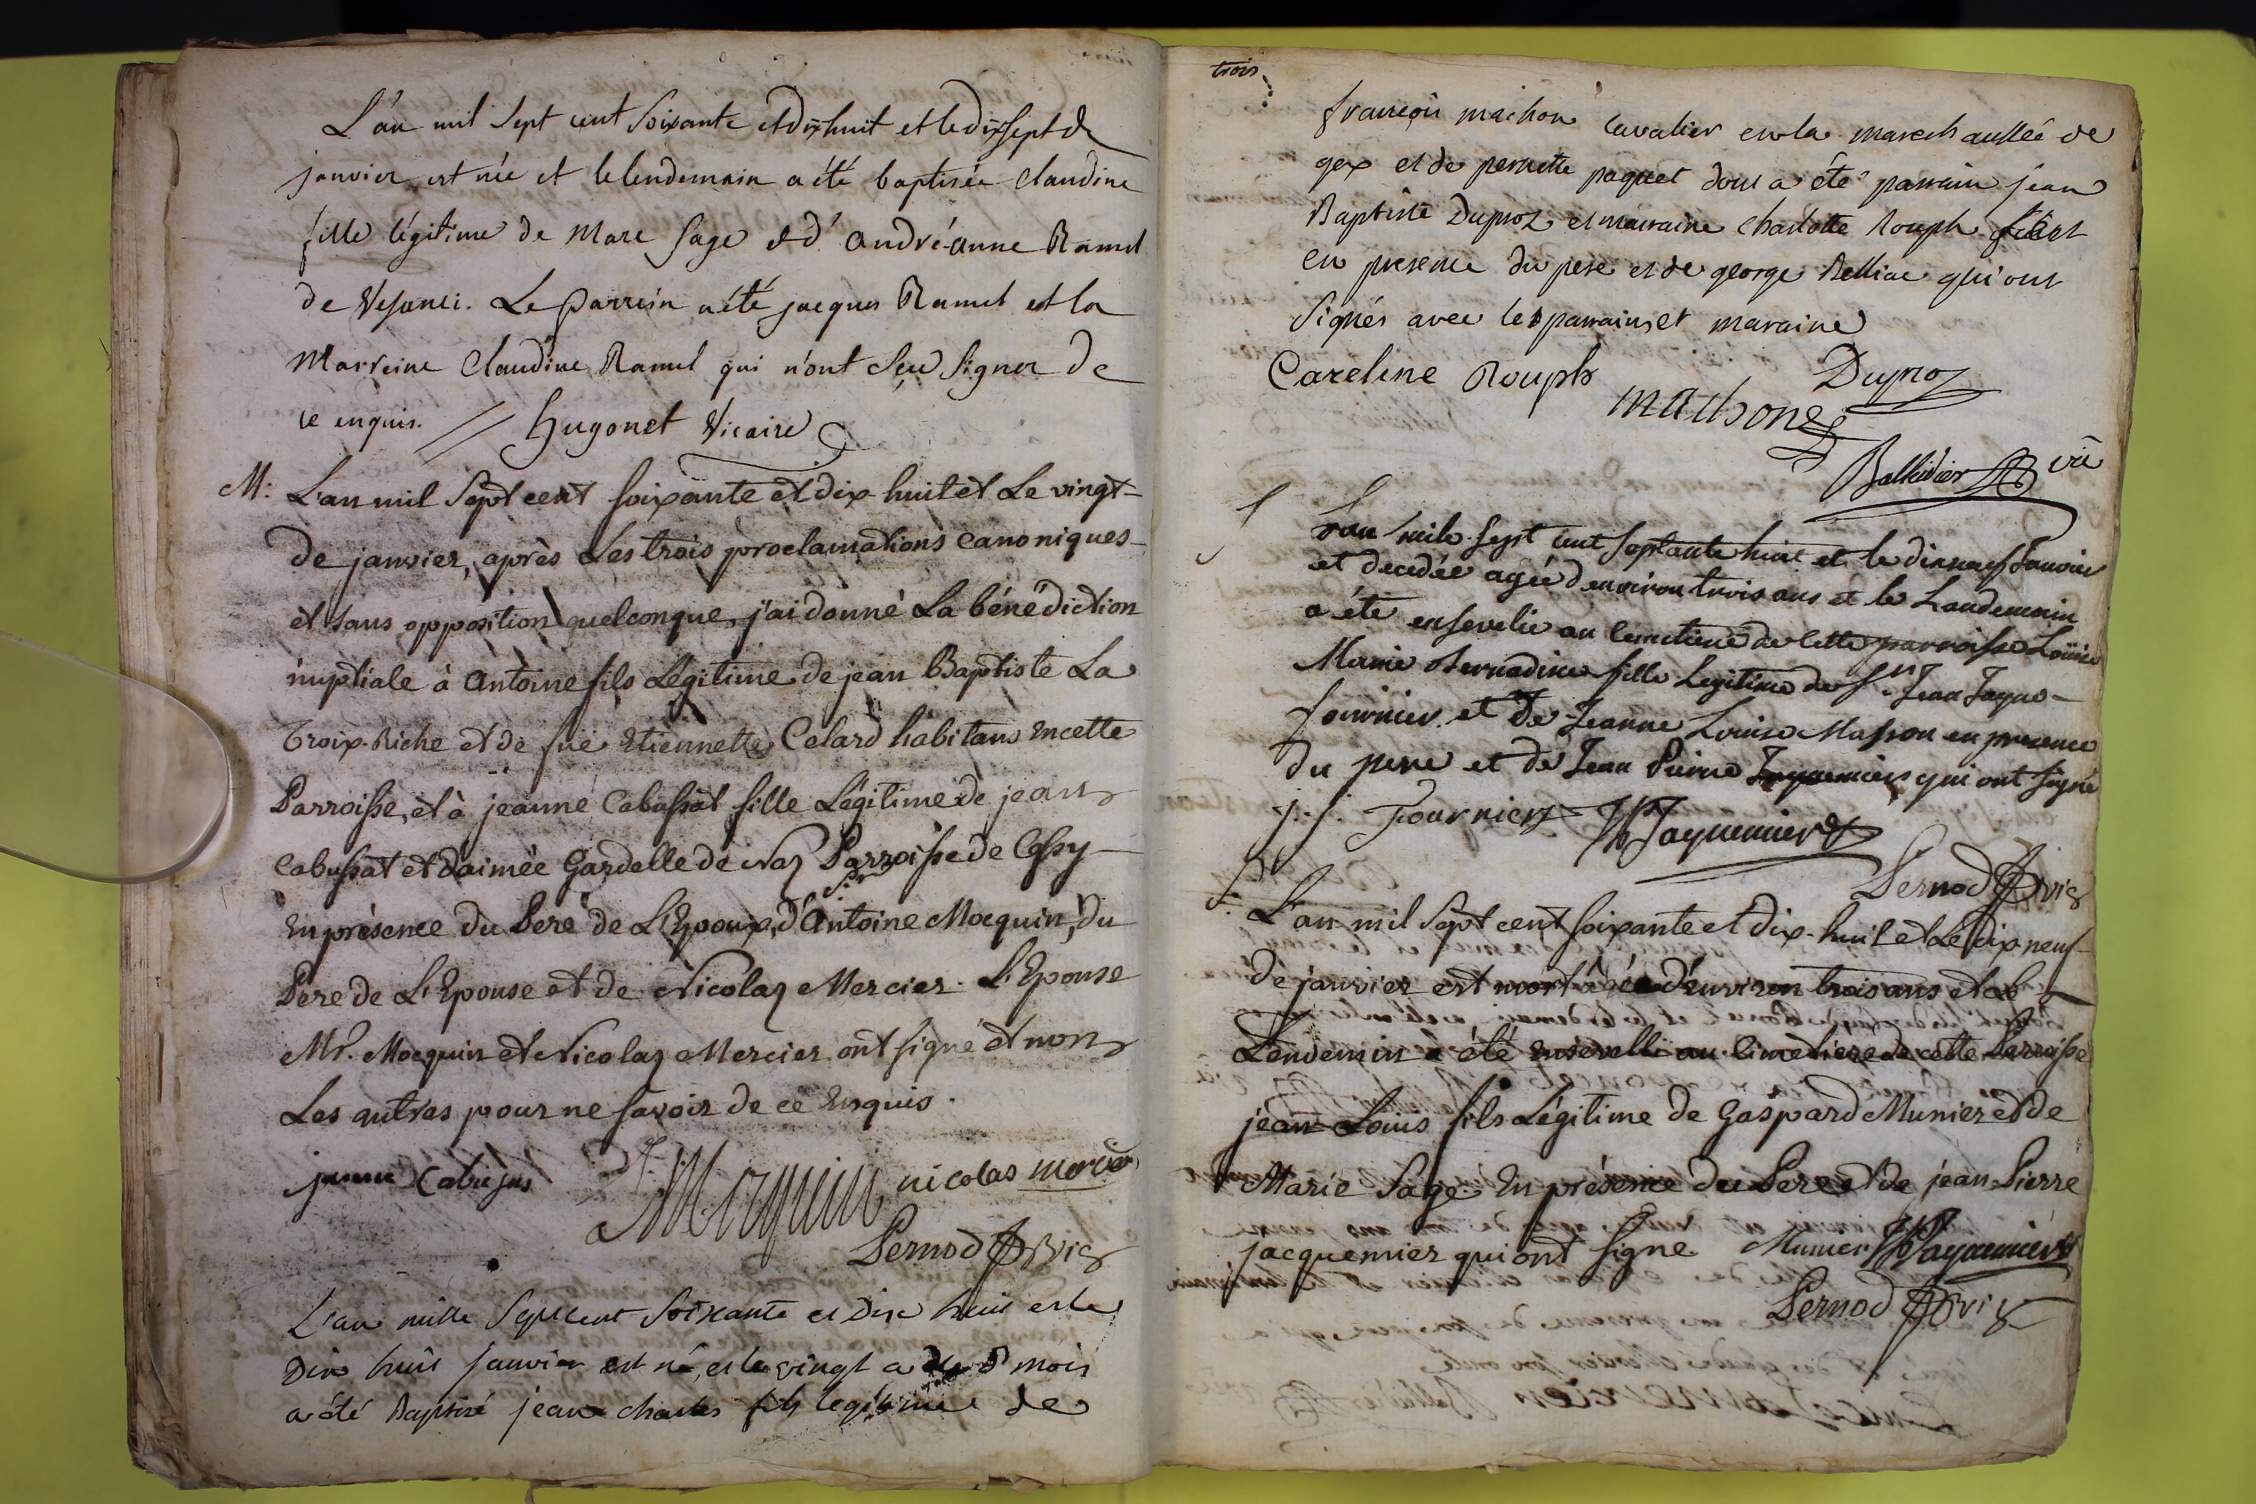 L'an mil sept cent soixante et dix huit et le dix sept de
janvier est née et le lendemain a été baptisée Claudine
fille légitime de Marc Sage et d' André-anne Ramel
de Vesanci. Le Parrein a été jacques Ramel et la
Marreine Claudine Ramel qui n'ont sçu signer de
ce enquis. Hugonet Vicaire
M: L'an mil sept cent soixante et dix-huit et Le vingt
de janvier, après Les trois proclamations canoniques
et sans opposition quelconque, j'ai donné La bénédiction
nuptiale à Antoine fils Légitime de jean Baptiste La
Croix-Riche et de füe Etiennette Celard habitans en cette
Parroisse, et à jeanne Cabussat fille Légitime de jean
Cabussat et d'aimée Gardelle de Naz Parroisse de Cessy
En présence du Pere de L'Epoux, d' Sr Antoine Mocquin, du
Pere de L'Epouse et de Nicolas Mercier. L'Epouse
Mr. Mocquin et Nicolas Mercier ont signé et non
Les autres pour ne savoir de ce Enquis.
jeanne Cabusas Mocquin nicolas mercier
Pernod vic
L'an mille sept cent soixante et dix huit et le
dix huit janvier est né, et le vingt du mois
a été Baptisé jean charles fils legitime de
trois
françois machon cavalier en la marechaussée de
gex et de pernette paquet dont a été parrain jean
Baptiste Duproz et marraine charlotte Rouph
en presence du pere et de george Belliac qui ont
signés avec les parrains et maraine
Careline Rouph Duproz
machone
Balleidier vic
S L'an mile sept cent septante huit et le dixneuf Janvier
et decedée agée denviron trois ans et le Landemain
a été ensevelie au Cimetiere de Cette parroisse Loüise
Marie Bernadine fille Legitime de Sr. Jean Jaque
fournier et De Jeanne Louise Masson en presence
du pere et de Jean Pierre Jaquemier qui ont signé
j. j. Fournier JP Jaquemier
Pernod vic
S. L'an mil sept cent soixante et dix-huit et Le dix neuf
de janvier est mort âgé d'environ trois ans et le
Lendemin a été ensevelli au Cimetiere de cette Parroisse
jean-Louis fils Légitime de Gaspard Munier et de
Marie Sage. En présence du Pere et de jean-Pierre
jacquemier qui ont signé. Munier JP Jaquemier
Pernod vic